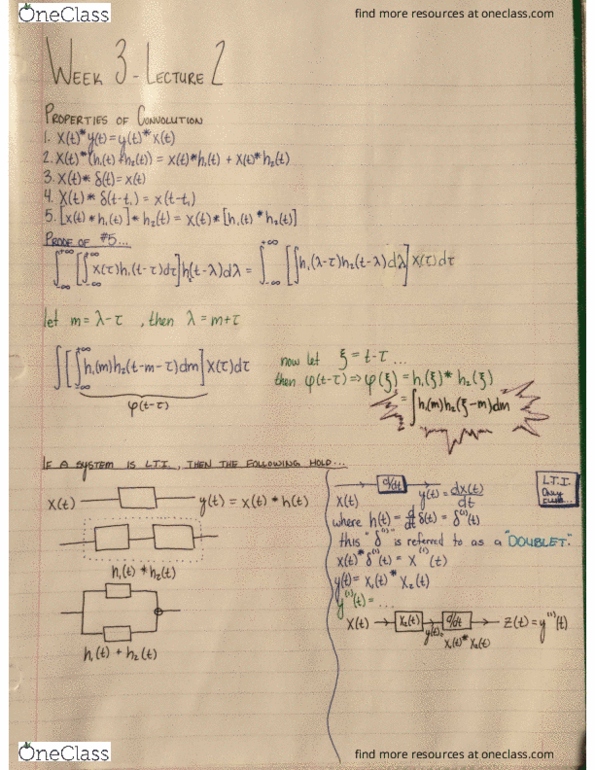 OneClass
find more resources at oneclass.com
WEEK 3 - LECTURE 2
PROPERTIES OF CONVOLUTION
1. x(t)*y(t)=y(t)*x(t)
2. x(t)*(h₁(t)+h₂(t)) = x(t)*h₁(t) + x(t)*h₂(t)
3. x(t)* δ(t)=x(t)
4. x(t)* δ(t-t₁) = x(t-t₁)
5. [x(t)*h₁(t)]*h₂(t) = x(t)*[h₁(t)*h₂(t)]
PROOF OF #5...
∫_{-∞}^{+∞} [∫_{-∞}^{+∞} x(τ)h₁(t-τ)dτ] h₂(t-λ)dλ = ∫_{-∞}^{+∞} [∫h₁(λ-τ)h₂(t-λ)dλ] x(τ)dτ
let m = λ-τ , then λ = m+τ
∫[∫_{-∞}^{+∞} h₁(m)h₂(t-m-τ)dm] x(τ)dτ
φ(t-τ)
now let ξ = t-τ...
then φ(t-τ) ⇒ φ(ξ) = h₁(ξ)* h₂(ξ)
= ∫h₁(m)h₂(ξ-m)dm
IF A SYSTEM IS L.T.I., THEN THE FOLLOWING HOLD...
x(t) y(t) = x(t)*h(t)
h₁(t)*h₂(t)
h₁(t)+h₂(t)
d/dt
L.T.I.
x(t) y(t) = dx(t)/dt
where h(t)= d/dt δ(t) = δ⁽¹⁾(t)
this "δ⁽¹⁾" is referred to as a "DOUBLET."
x(t)*δ⁽¹⁾(t) = x⁽¹⁾(t)
y(t)= x₁(t)* x₂(t)
y⁽¹⁾(t) = ...
x(t) → x₂(t) → d/dt → z(t)=y⁽¹⁾(t)
y(t)=
x₁(t)* x₂(t)
OneClass
find more resources at oneclass.com